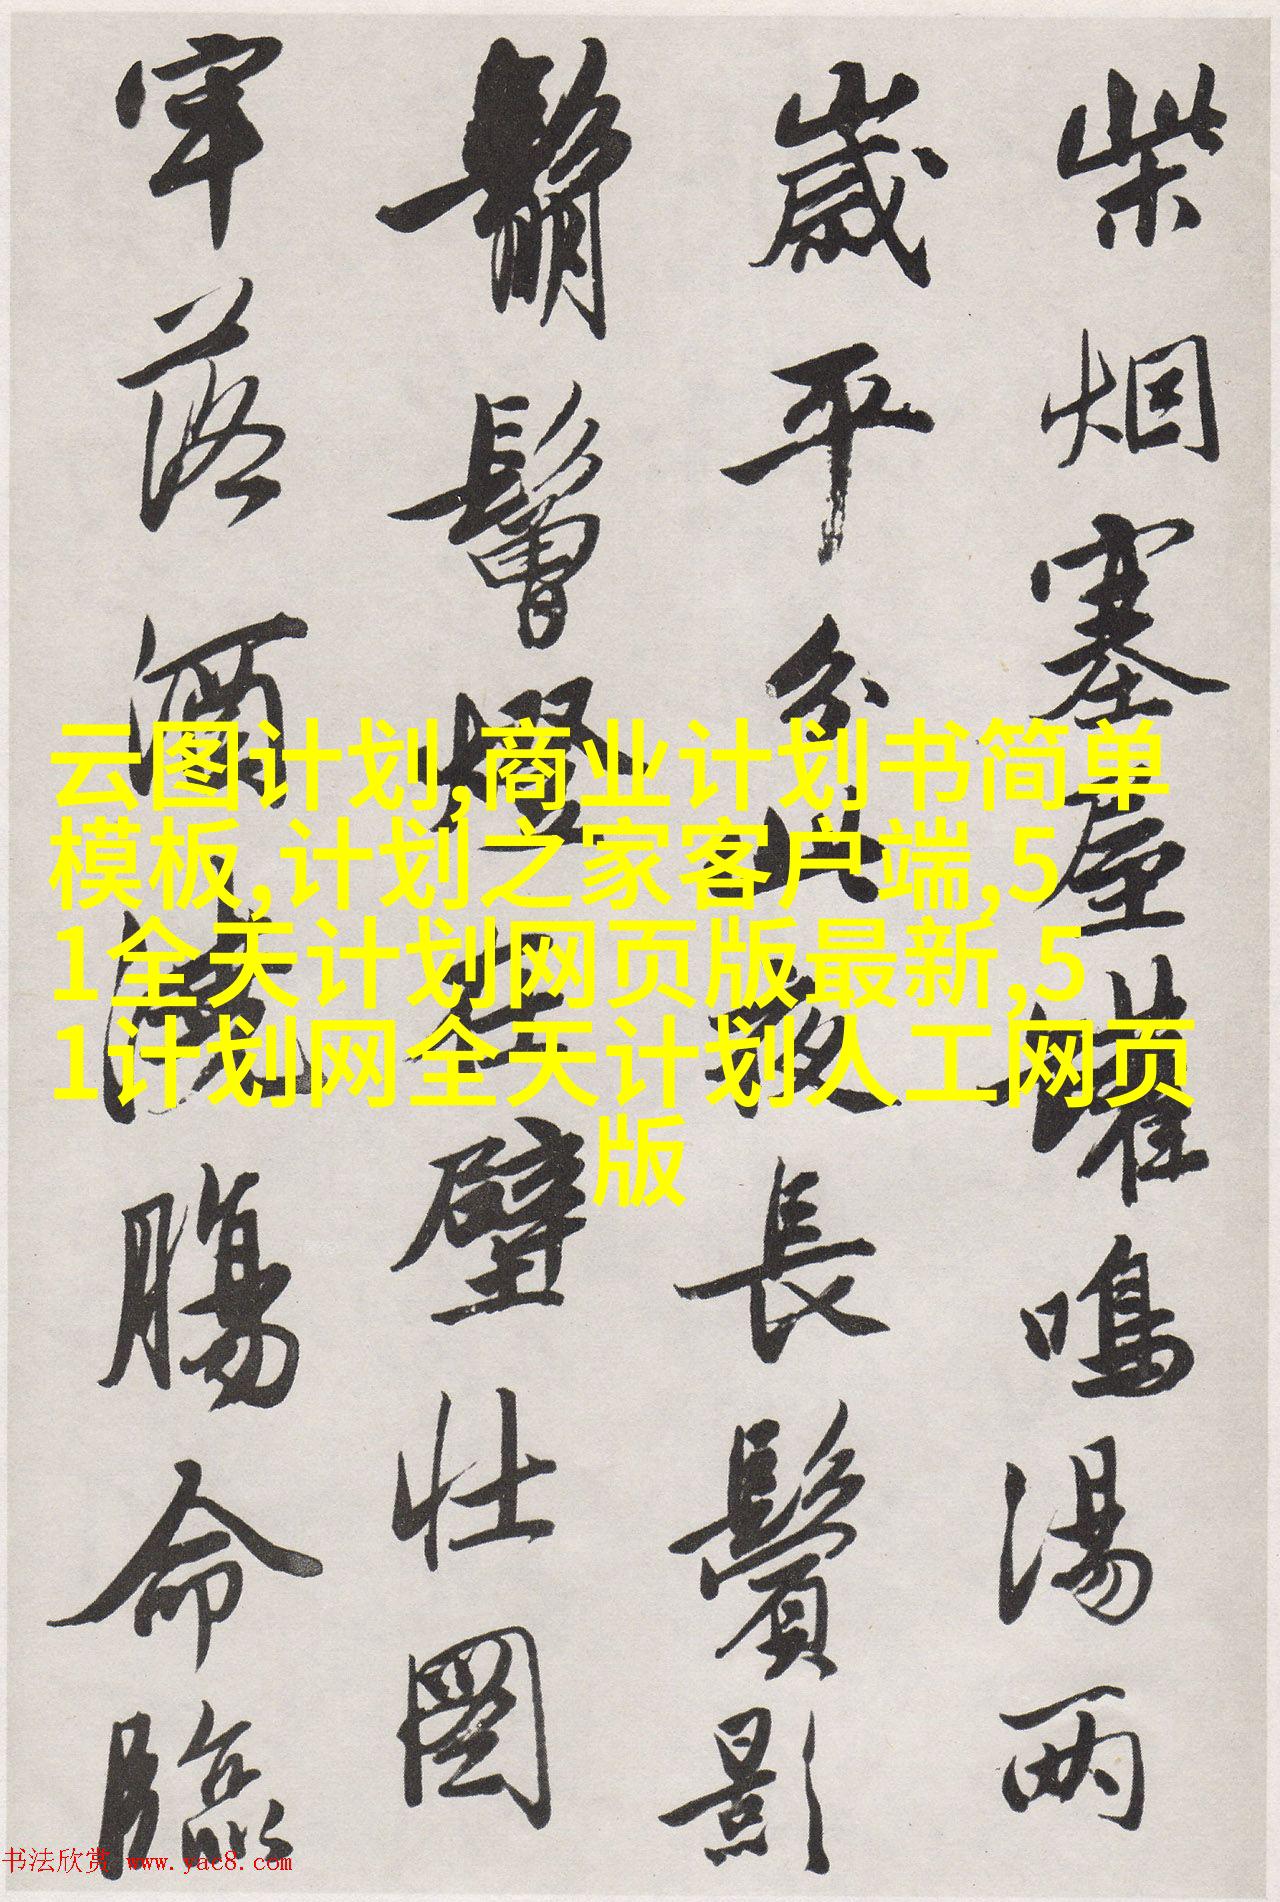 柴烟塞屋罐鳴湯两
歲平分夜長鬢影
鬅鬙燈在壁壯圖
牢落酒澆腸命臨
云图计划,商业计划书简单
模板,计划之家客户端,5
1全天计划网页版最新,5
1计划网全天计划人工网页
版
书法欣赏 www.yac8.com